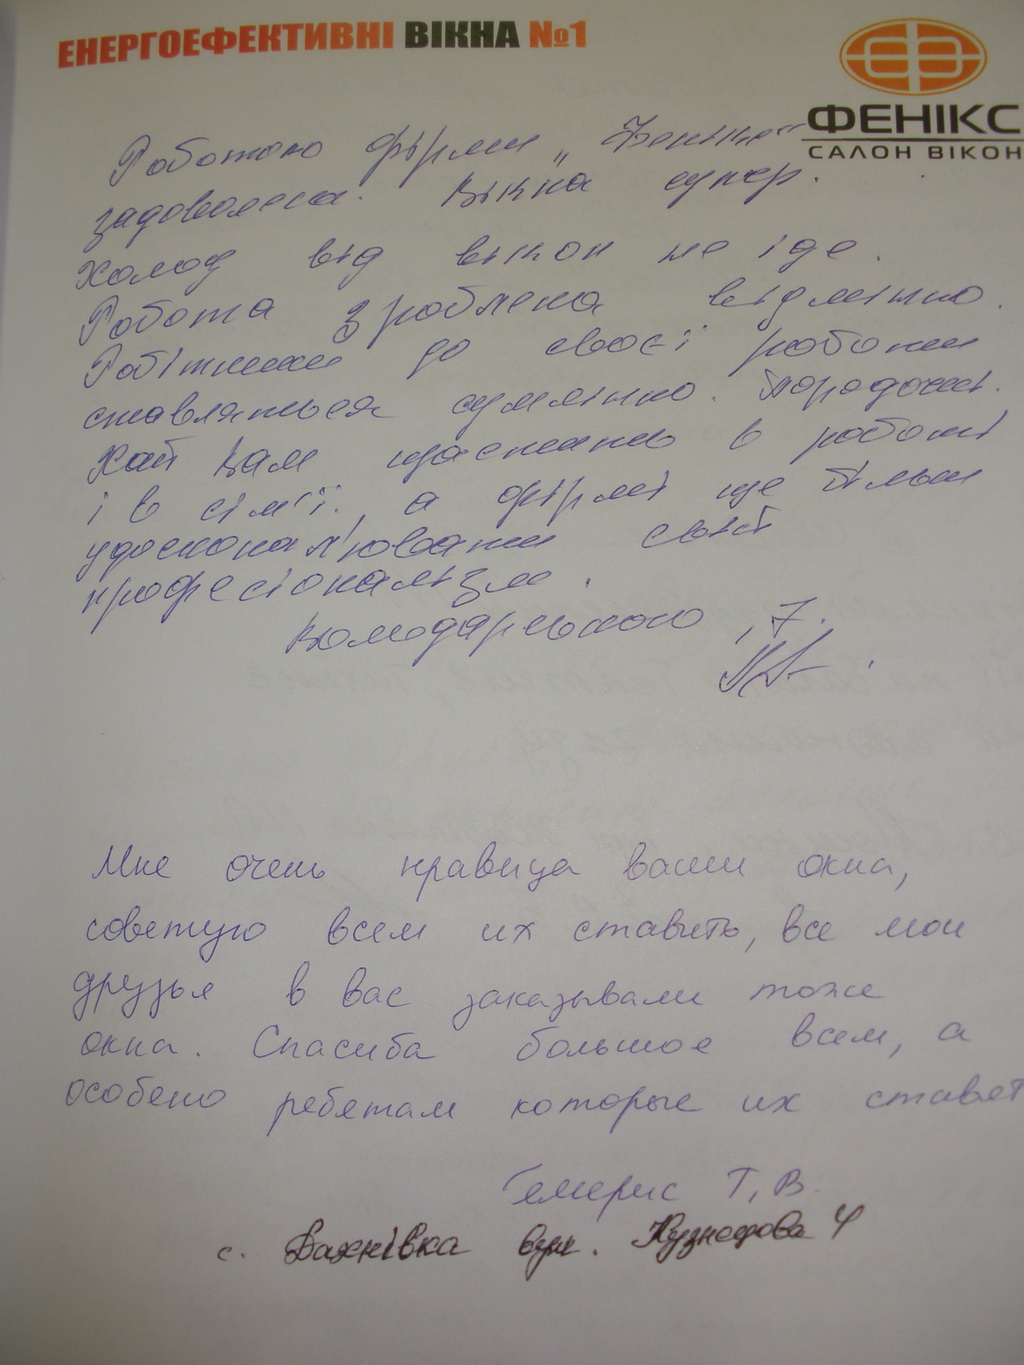 ЕНЕРГОЕФЕКТИВНІ ВІКНА №1
ФЕНІКС
САЛОН ВІКОН
Роботою фірми „Фенікс"
задоволена. Вікна супер.
Холод від вікон не іде.
Робота зроблена відмінно.
Робітники до своєї роботи
ставляться сумлінно. Порядочні.
Хай Вам щастить в роботі
і в сім'ї, а фірмі ще більш
удосконал'ювати свій
професіоналізм.
Мне очень нравица ваши окна,
советую всем их ставить, все мои
друзья в вас заказывали тоже
окна. Спасиба большое всем, а
особено ребятам которые их ставят
Т.В.
с. вул. 4